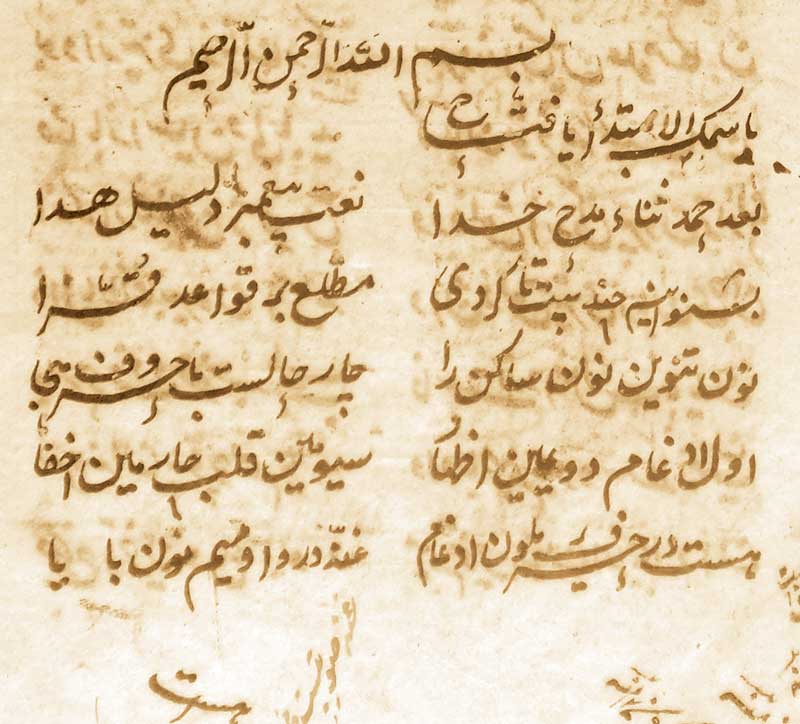 بسم الله الرحمن الرحيم
باسمك الابتدأ يا فتاح
بعد حمد ثناء مدح خدا نعت پیغمبر دلیل هدا
بشنو این چند بیت تا گردی مطلع بر قواعد قرا
نون تنوین نون ساکن را چار حالست با حروف تهجی
اول ادغام دو یمین اظهار سیومین قلب چارمین اخفا
هست در حرف یرملون ادغام غنه در واو و میم نون با یا
هست